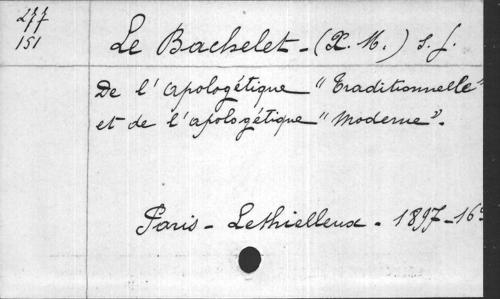 277
151
Le Bachelet - (X. M.) S. J.
De l'apologétique "Traditionnelle"
et de l'apologétique "Moderne".
Paris - Lethielleux - 1897 - 16°